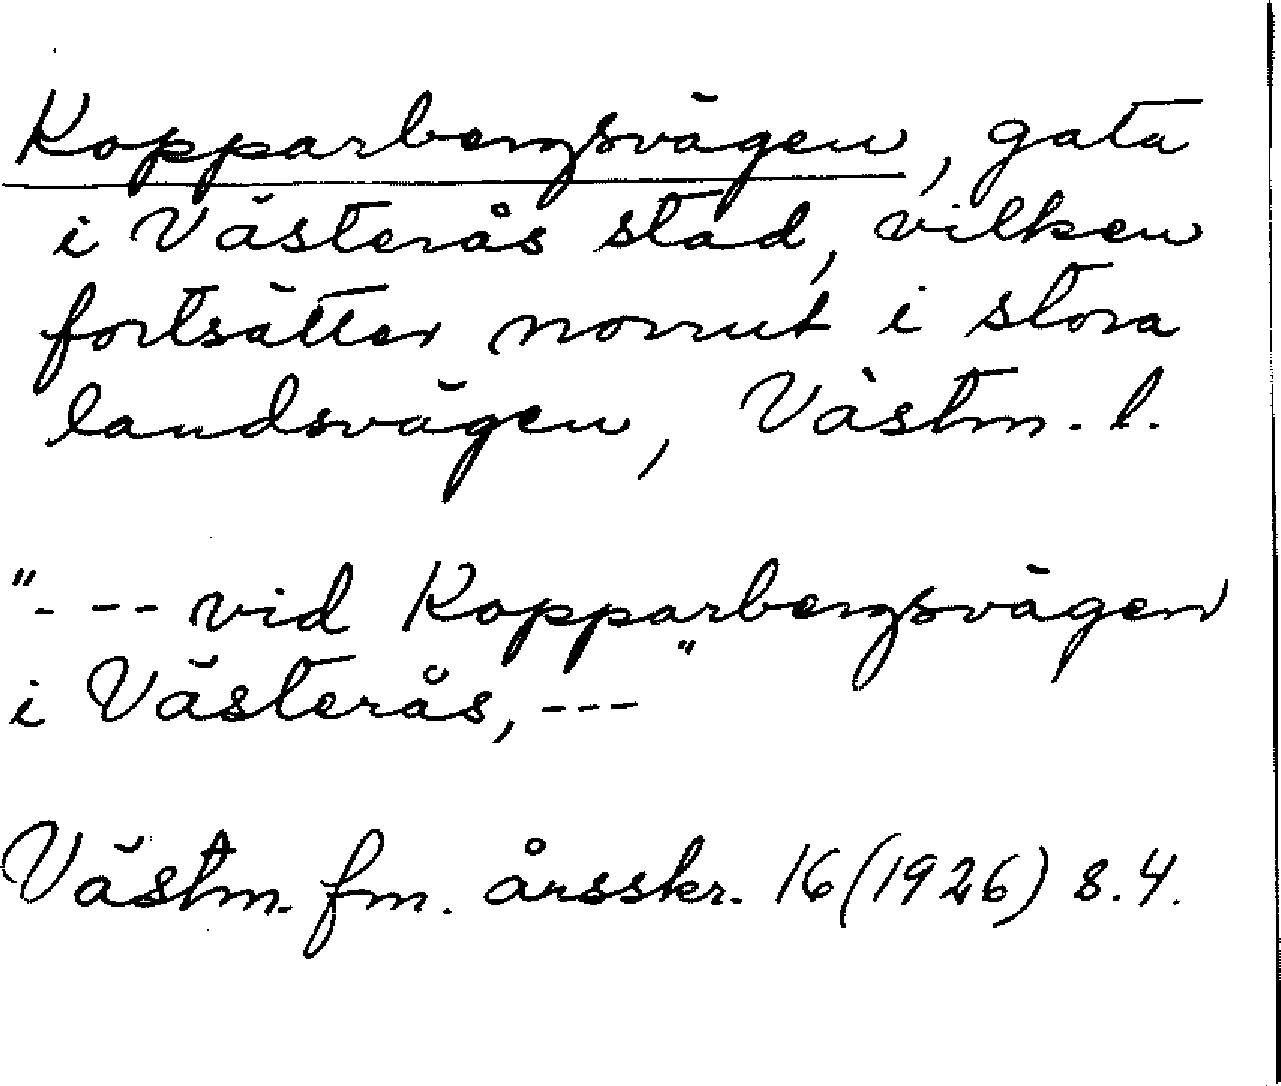 Kopparbergsvägen, gata
i Västerås stad, vilken
fortsätter norrut i stora
landsvägen, Västm. l.
"- -- vid Kopparbergsvägen
i Västerås, ---"
Västm. fm. årsskr. 16 (1926) s. 4.